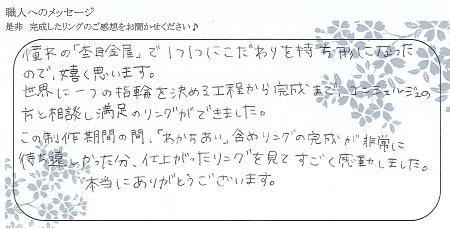 職人へのメッセージ
是非 完成したリングのご感想をお聞かせください♪
憧れの「杢目金屋」で1つ1つにこだわりを持ち形になった
ので、嬉しく思います。
世界に一つの指輪を決める工程から完成まで、コンシェルジュの
方と相談し満足のリングができました。
この制作期間の間、「わかちあい」含めリングの完成が非常に
待ち遠しかった分、仕上がったリングを見てすごく感動しました。
本当にありがとうございます。